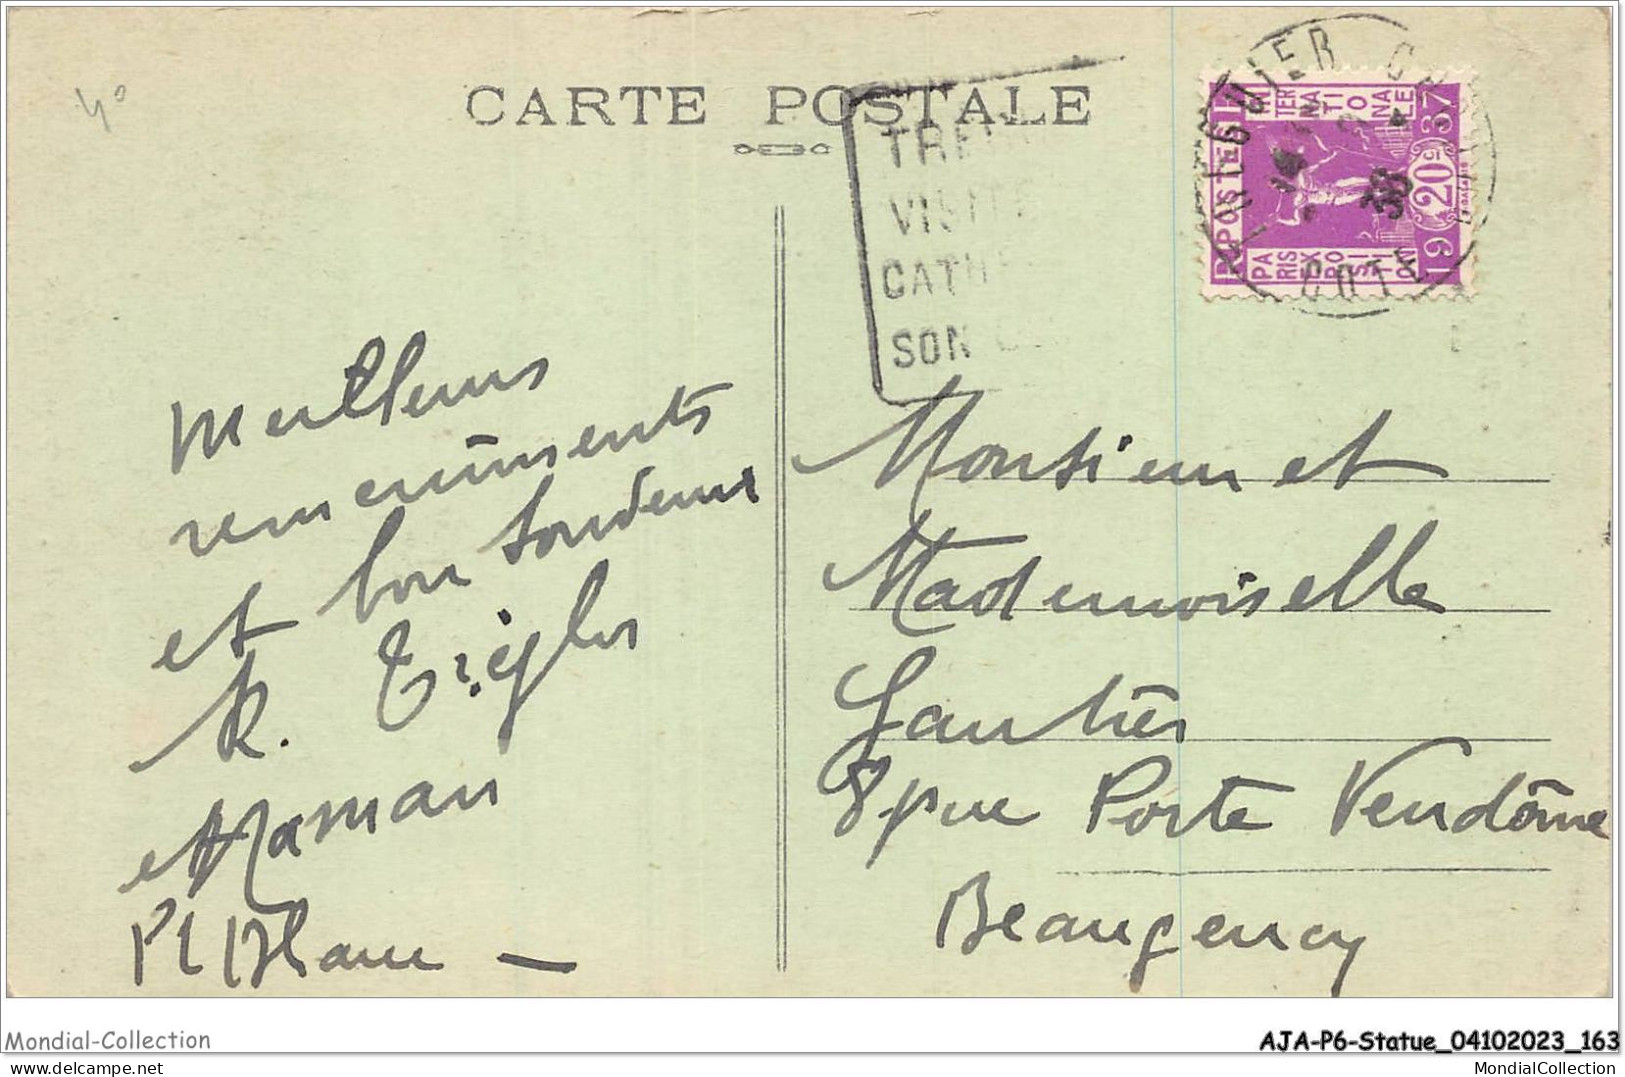 4°
CARTE POSTALE
TRE
VISITE
CATH
SON
TREGUIER
COTE
38
POSTES
RF
INTERNATIONALE
PARIS EXPOSITION
1937
20c
Meilleurs
remerciements
et bon souvenir
et Maman
Monsieur et
Mademoiselle
Gautier
8 rue Porte Vendôme
Beaugency
Mondial-Collection
AJA-P6-Statue_04102023_163
www.delcampe.net
MondialCollection